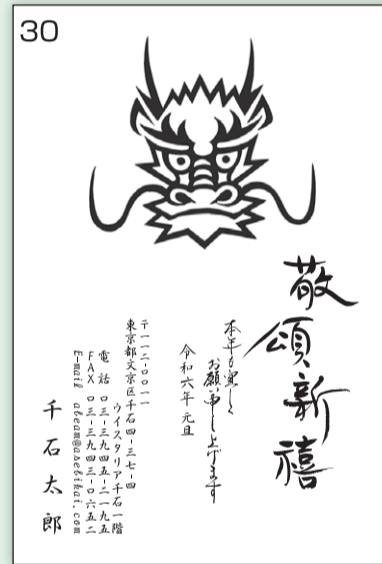 30
敬頌新禧
本年も宜しく
お願い申し上げます
令和六年 元旦
〒一一二-〇〇一一
東京都文京区千石四-三七-四
ウイスタリア千石一階
電話 〇三-三九四五-二一九五
FAX 〇三-三九四三-〇六五二
E-mail abeam@asebikai.com
千石太郎